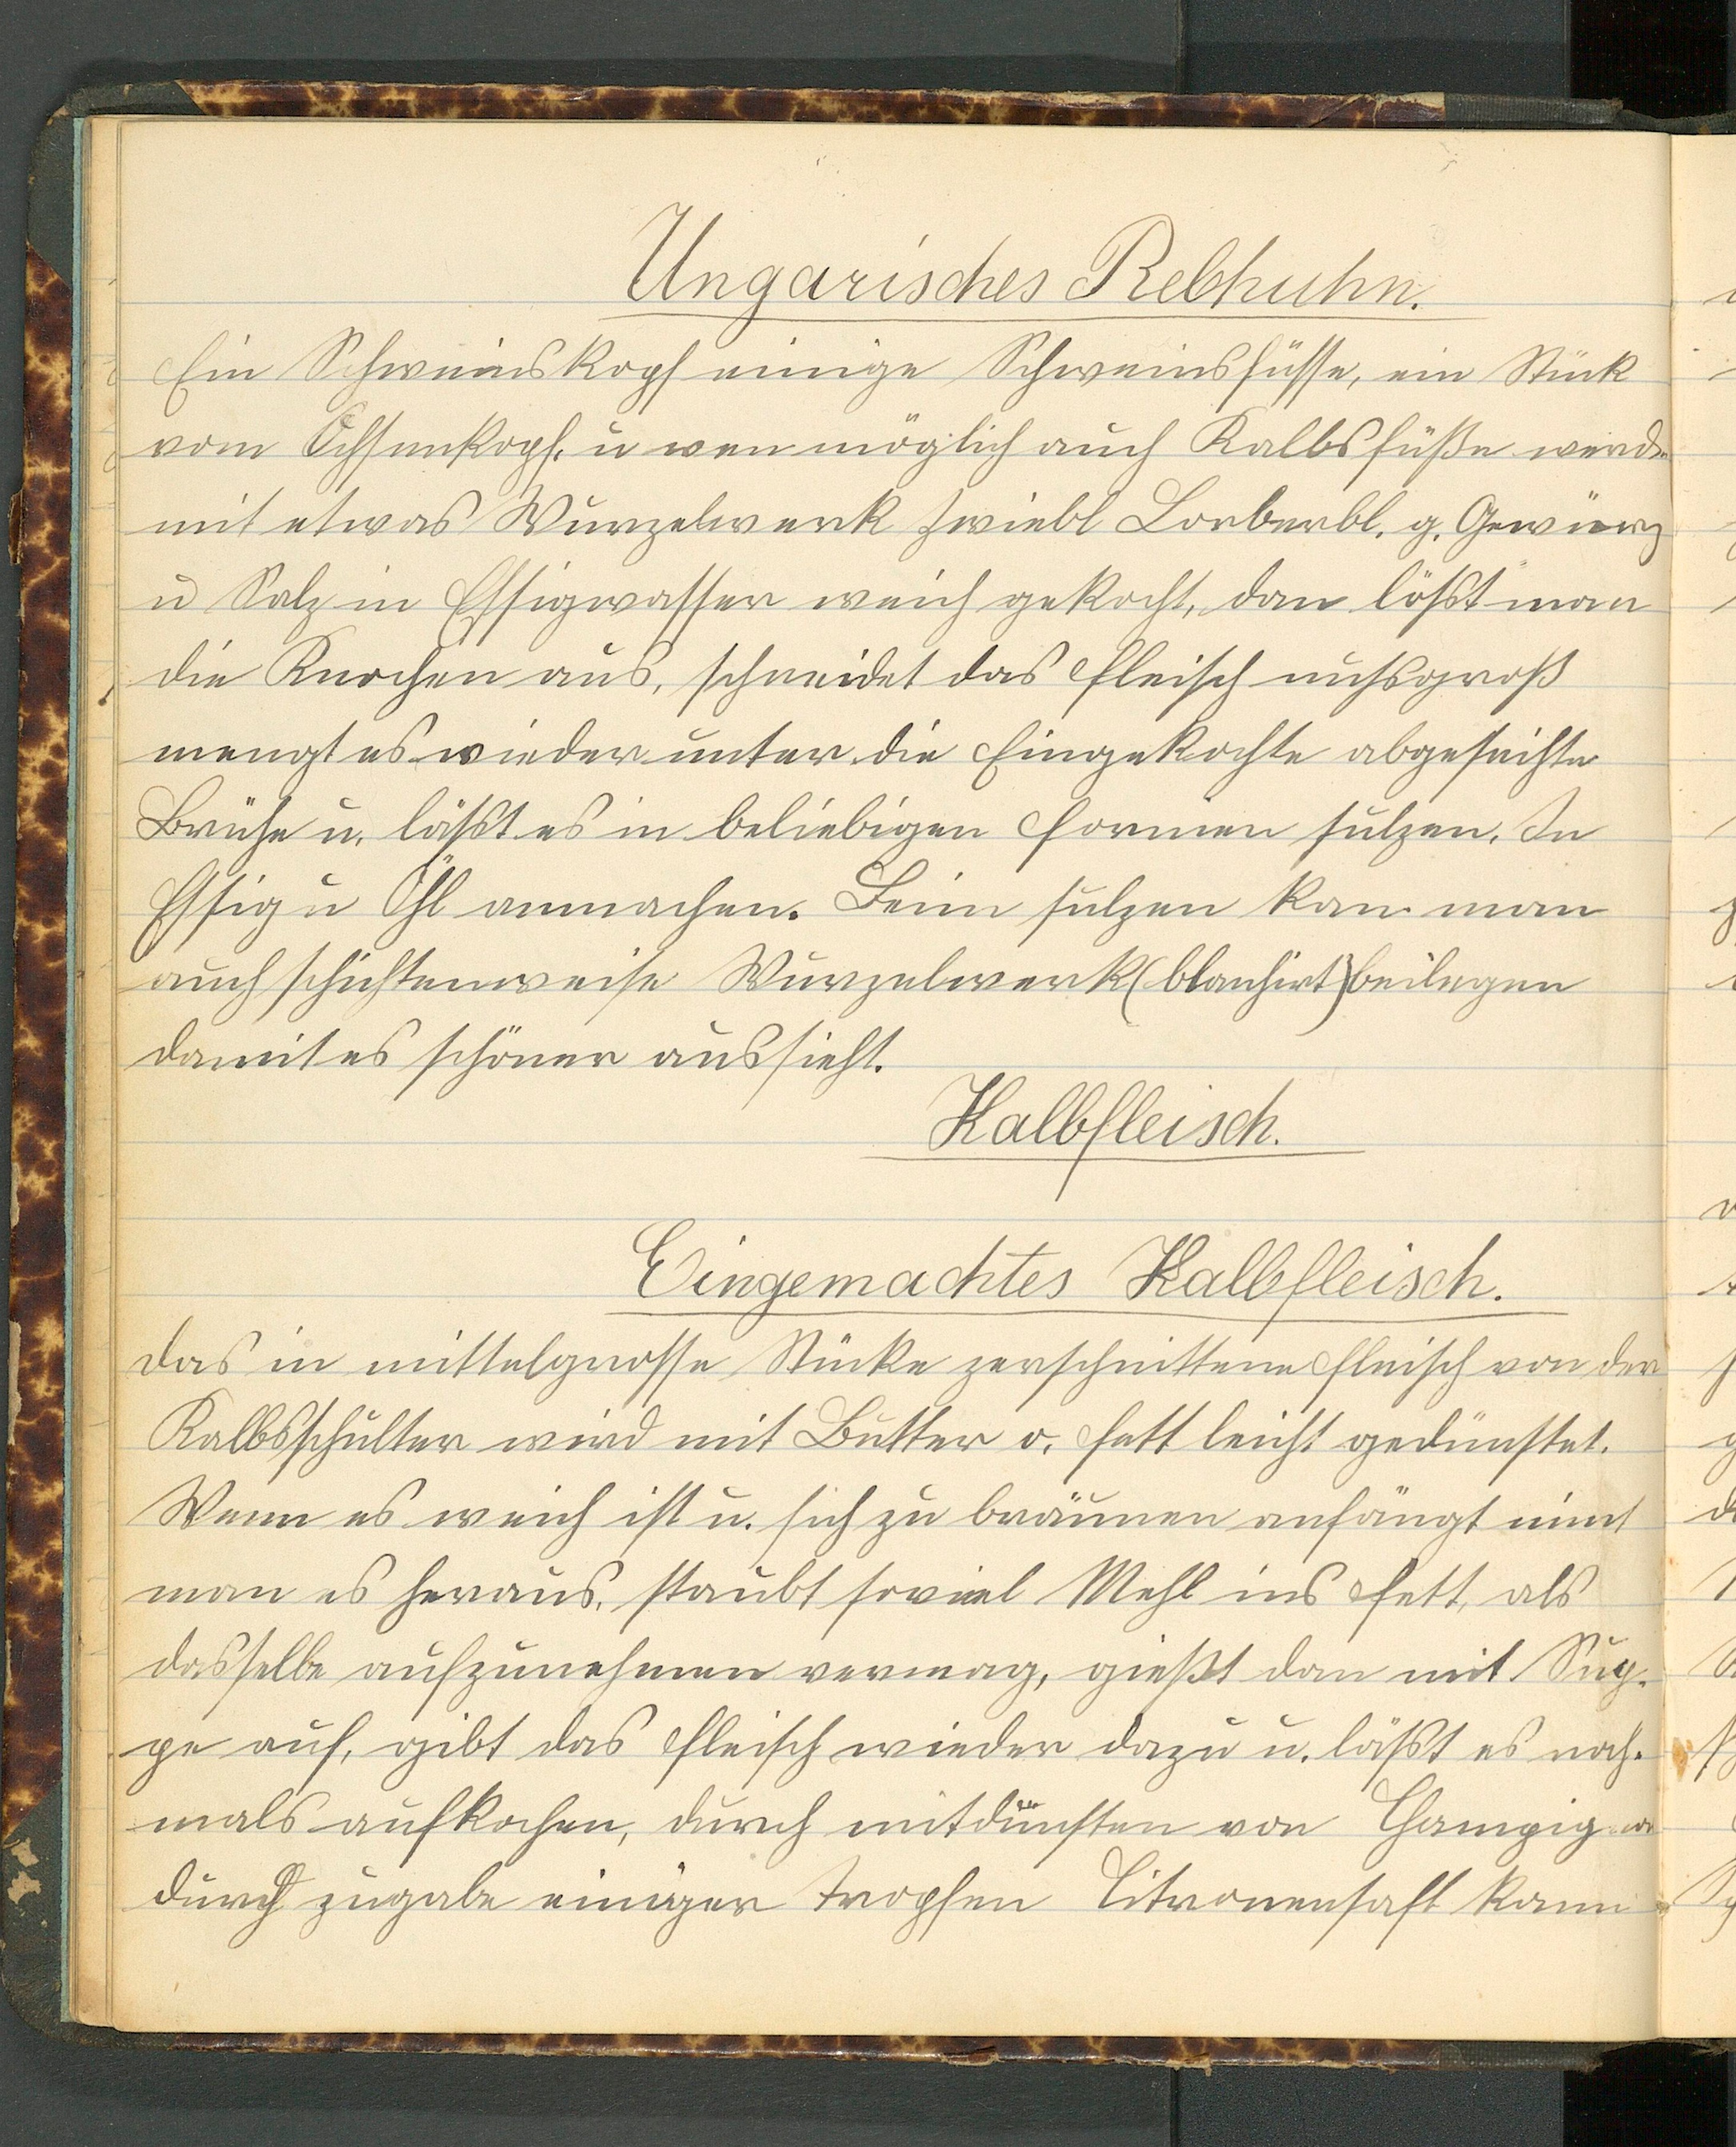 Ungarisches Rebhuhn.
Ein Schweinskopf einige Schweinsfüsse, ein Stück
vom Ochsenkopf, u wen möglich auch Kalbsfüße werden
mit etwas Wurzelwerk Zwiebl Lorberbl. g. Gewürz
u Salz in Essigwasser weich gekocht, dan lößt man
die Knochen aus, schneidet das Fleisch nußgroß
mengt es wieder unter die Eingekochte abgeseihte
Brühe u. läßt es in beliebigen Formen sulzen. In
Essig u Öhl anmachen. Beim sulzen kan man
auch schichtenweise Wurzelwerk (blanhirt) beilegen
damit es schöner aussieht.
Kalbfleisch.
Eingemachtes Kalbfleisch.
das in mittelgrosse Stücke zerschnittene Fleisch von der
Kalbsschulter wird mit Butter o. Fett leicht gedünstet.
Wenn es weich ist u. sich zu bräunen anfängt nimt
man es heraus, staubt soviel Mehl ins Fett, als
dasselbe aufzunehmen vermag, gießt dan mit Sup-
pe auf, gibt das Fleisch wieder dazu u. läßt es noch-
mals aufkochen, durch mitdünsten von
durch zugabe einiger Tropfen Citronensaft kann